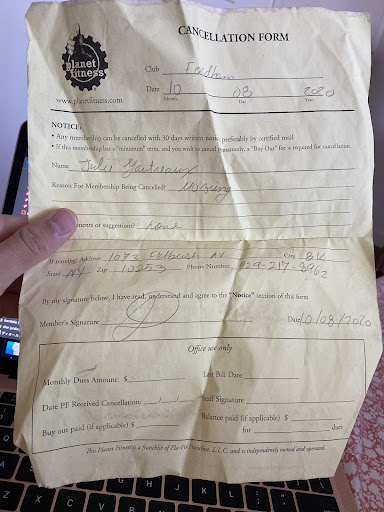 CANCELLATION FORM
planet fitness
Club Fordham
Date 10 03 2020
Month Day Year
www.planetfitness.com
NOTICE:
• Any membership can be cancelled with 30 days written notice preferably by certified mail.
• If this membership has a "minimum" term, and you wish to cancel prematurely, a "Buy Out" fee is required for cancellation.
Name Julie
Reason For Membership Being Cancelled? Moving
ments or suggestions? none
If moving: Address 1073 Flatbush AV City BK
State NY Zip 10253 Phone Number 929-217-3962
By my signature below, I have read, understand and agree to the "Notice" section of this form
Member's Signature Date 10/08/2020
Office use only
Monthly Dues Amount: $ Last Bill Date
Date PF Received Cancellation: / / Staff Signature
Buy out paid (if applicable) $ Balance paid (if applicable) $
for dues
This Planet Fitness is a franchise of Pla-Fit Franchise, L.L.C. and is independently owned and operated.